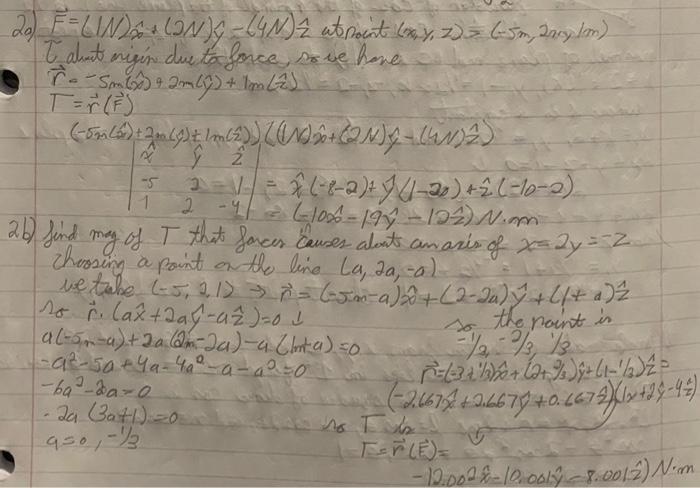 2a) F⃗=(1N)x̂+(2N)ŷ-(4N)ẑ at point (x,y,z)=(-5m,2m,1m)
τ about origin due to force, so we have
r⃗=-5m(x̂)+2m(ŷ)+1m(ẑ)
T=r⃗(F⃗)
(-5m(x̂)+2m(ŷ)+1m(ẑ))((1N)x̂+(2N)ŷ-(4N)ẑ)
x̂ ŷ ẑ
-5 2 1 = x̂(-8-2)+ŷ(1-20)+ẑ(-10-2)
1 2 -4 = (-10x̂-19ŷ-12ẑ)N·m
2b) find mag of T that forces causes about an axis of x=2y=-z
choosing a point on the line (a,2a,-a)
we take (-5,2,1) → r⃗=(-5m-a)x̂+(2-2a)ŷ+(1+a)ẑ
so r⃗·(ax̂+2aŷ-aẑ)=0 ↓
a(-5m-a)+2a(2m-2a)-a(1m+a)=0
-a²-5a+4a-4a²-a-a²=0
-6a²-2a=0
-2a(3a+1)=0
a=0,-1/3
so the point is
-1/3,-2/3,1/3
r⃗=(-3+1/3)x̂+(2+2/3)ŷ+(1-1/3)ẑ=
(-2.667x̂+2.667ŷ+0.667ẑ)(1x+2ŷ-4ẑ)
so T is
T=r⃗(F⃗)=
-12.002x̂-10.001ŷ-8.001ẑ)N·m